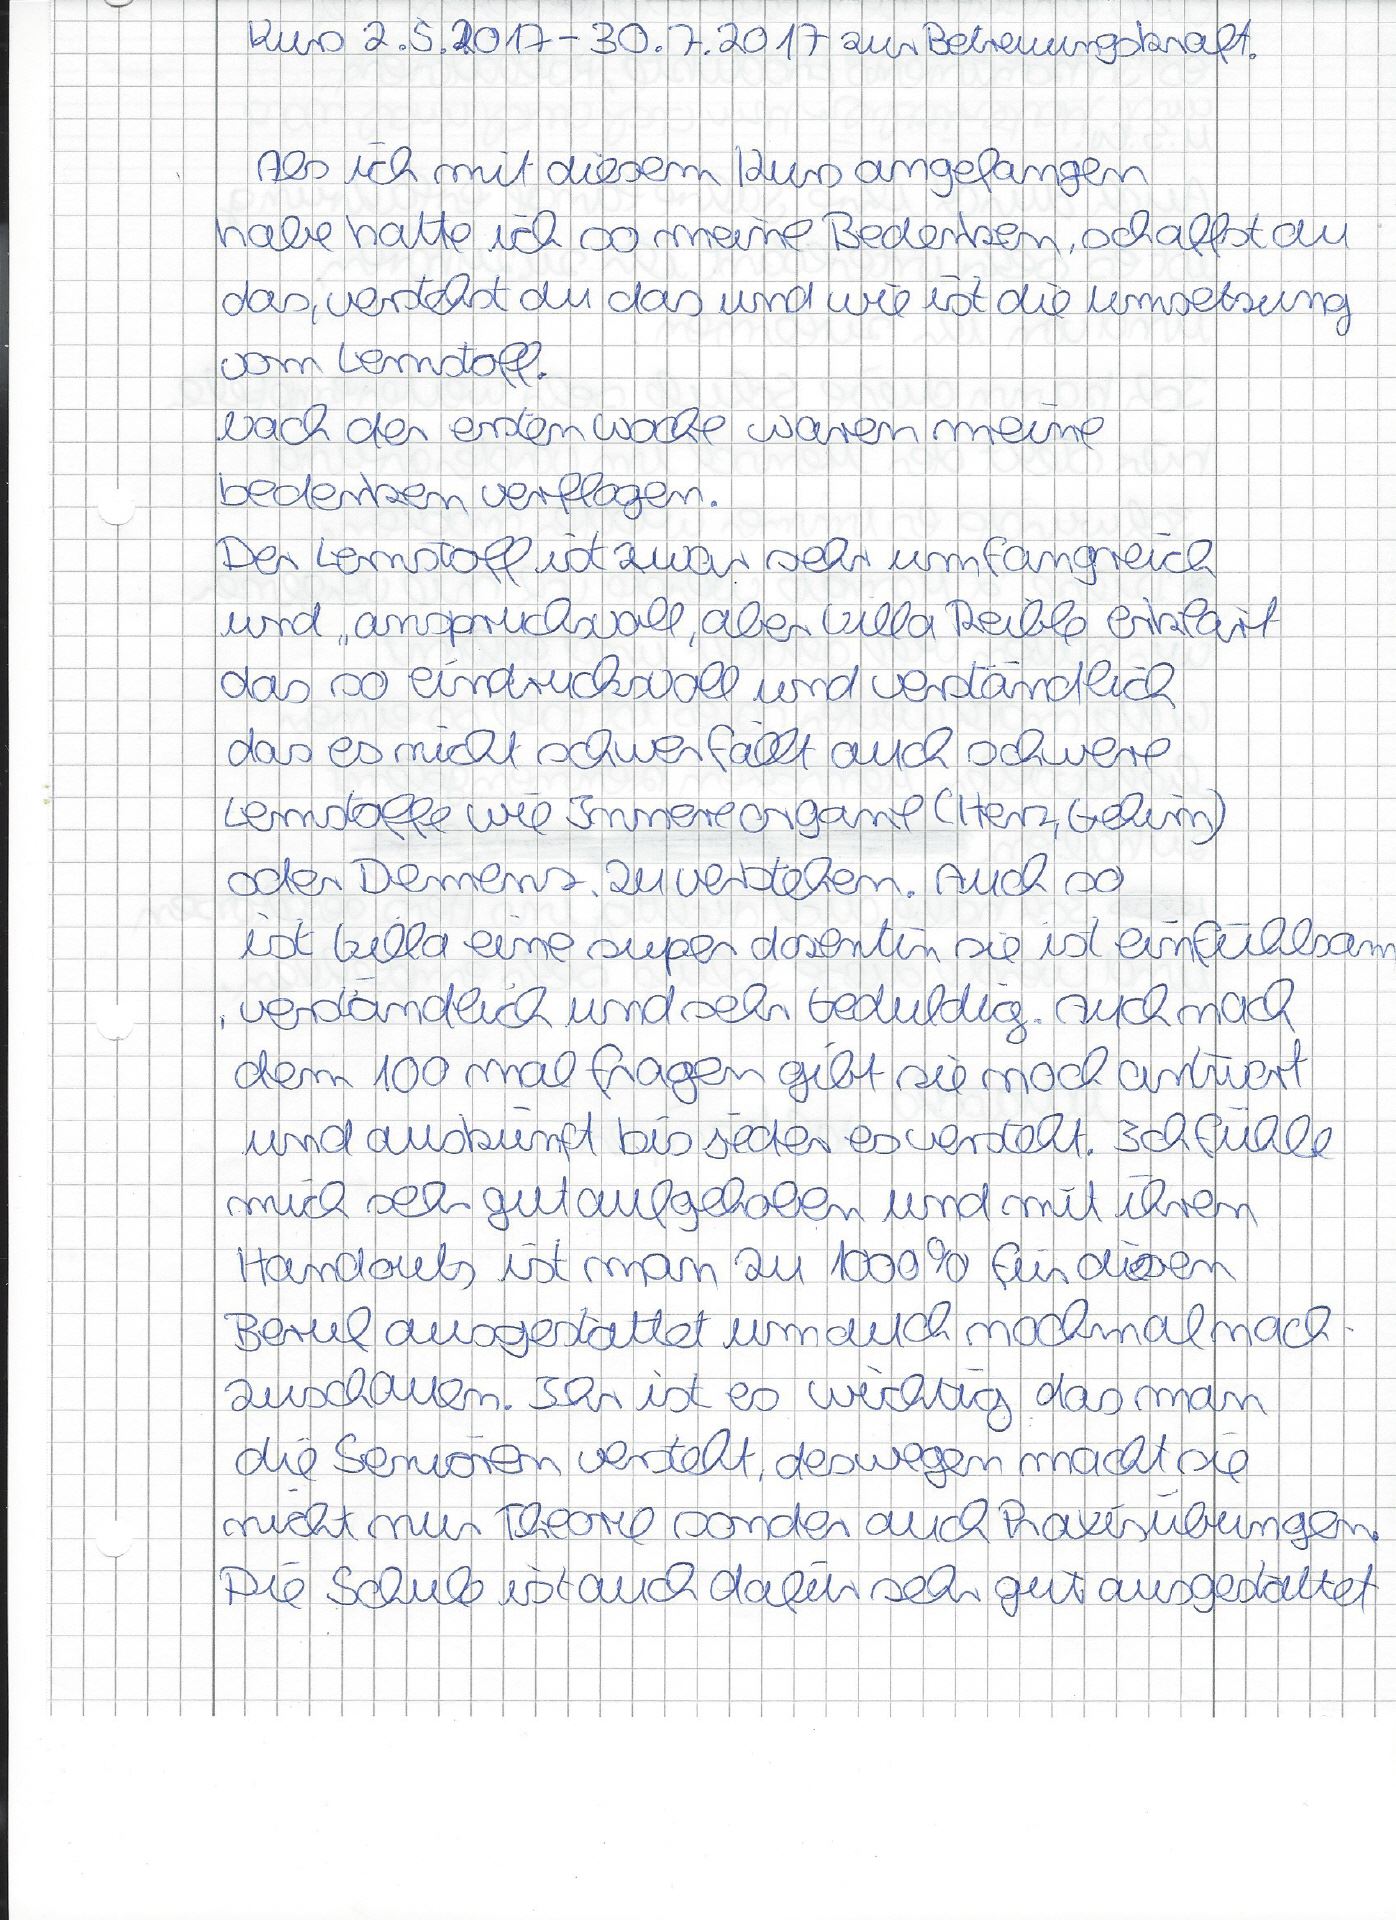 Kurs 2.5.2017 - 30.7.2017 zur Betreuungskraft.
Als ich mit diesem Kurs angefangen
habe hatte ich so meine Bedenken, schaffst du
das, verstehst du das und wie ist die umsetzung
vom Lernstoff.
Nach der ersten Woche waren meine
bedenken verflogen.
Der Lernstoff ist zwar sehr umfangreich
und anspruchsvoll, aber Gilla erklärt
das so eindrucksvoll und verständlich
das es nicht schwer fällt auch schwere
Lernstoffe wie Innereorgane (Herz, Gehirn)
oder Demenz zu verstehen. Auch so
ist Gilla eine super dozentin sie ist einfühlsam
, verständlich und sehr Geduldig. Auch nach
dem 100 mal fragen gibt sie noch antwort
und auskunft bis jeder es versteht. Ich fühle
mich sehr gut aufgehoben und mit ihren
Handouts ist man zu 1000% für diesen
Beruf ausgestattet um auch nochmal nach-
zuschauen. Ihr ist es wichtig das man
die Senioren versteht, deswegen macht sie
nicht nur Theorie sonder auch Praxisübungen.
Die Schule ist auch dafür sehr gut ausgestattet